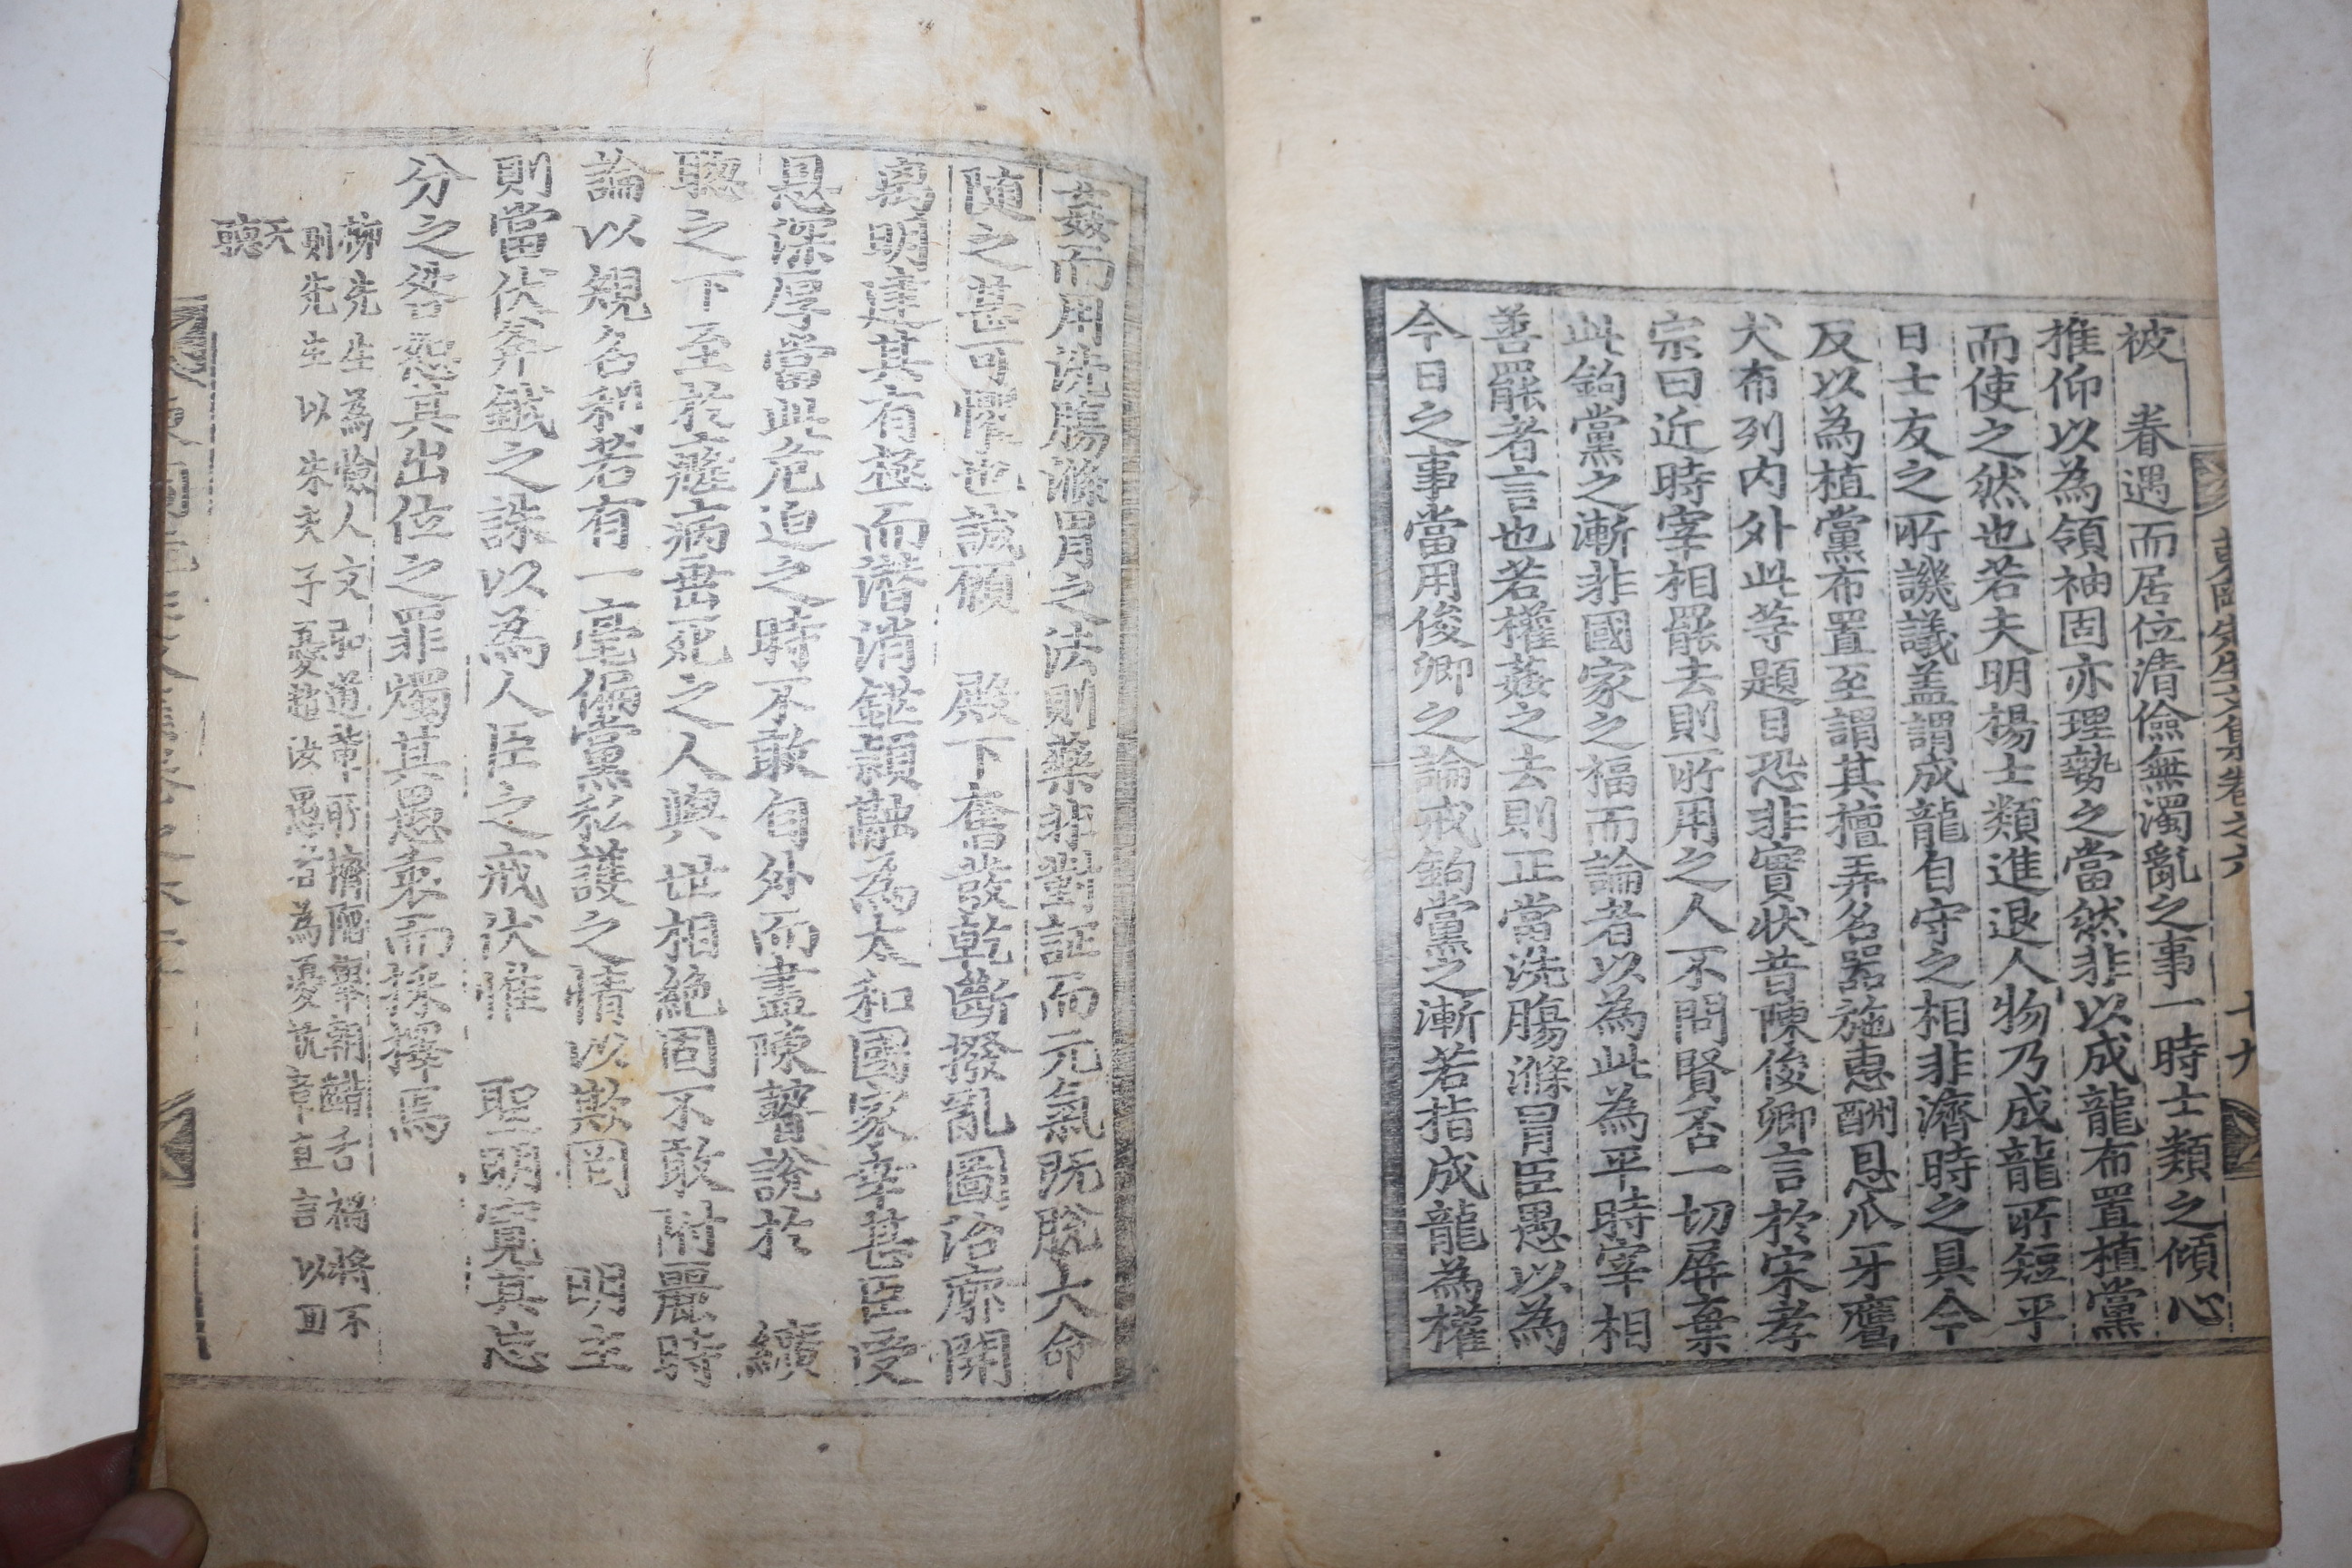 東岡先生文集卷之六
十九
被 眷遇而居位清儉無濁亂之事一時士類之傾心
推仰以為領袖固亦理勢之當然非以成龍布置植黨
而使之然也若夫明楊士類進退人物乃成龍所短乎
日士友之所譏議盖謂成龍自守之相非濟時之具今
反以為植黨布置至謂其擅弄名器施惠酬恩瓜牙鷹
犬布列内外此等題目恐非實狀昔陳俊卿言於宋孝
宗曰近時宰相罷去則所用之人不問賢否一切屏棄
此鉤黨之漸非國家之福而論者以為此為平時宰相
善罷者言也若權姦之去則正當洗膓滌胃臣愚以為
今日之事當用俊卿之論戒鉤黨之漸若指成龍為權
姦而用洗膓滌胃之法則藥非對証而元氣旣脫大命
随之甚可懼也誠願 殿下奮發乾斷撥亂圖治廓開
离明建其有極而潜消 為太和國家幸甚臣受
恩深厚當此危迫之時不敢自外而盡陳瞽說於 纊
聰之下至於癃病垂死之人與世相絶固不敢附麗時
論以規名利若有一毫偏黨私護之情以欺罔 明主
則當伏斧鉞之誅以為人臣之戒伏惟 聖明寬其忘
分之咎恕其出位之罪燭其愚衷而採擇焉
柳先生為憸人文弘道輩所擠陷舉朝齰舌禍將不
則先生以朱夫子憂 汝愚 為憂抗章直言以回
天聽